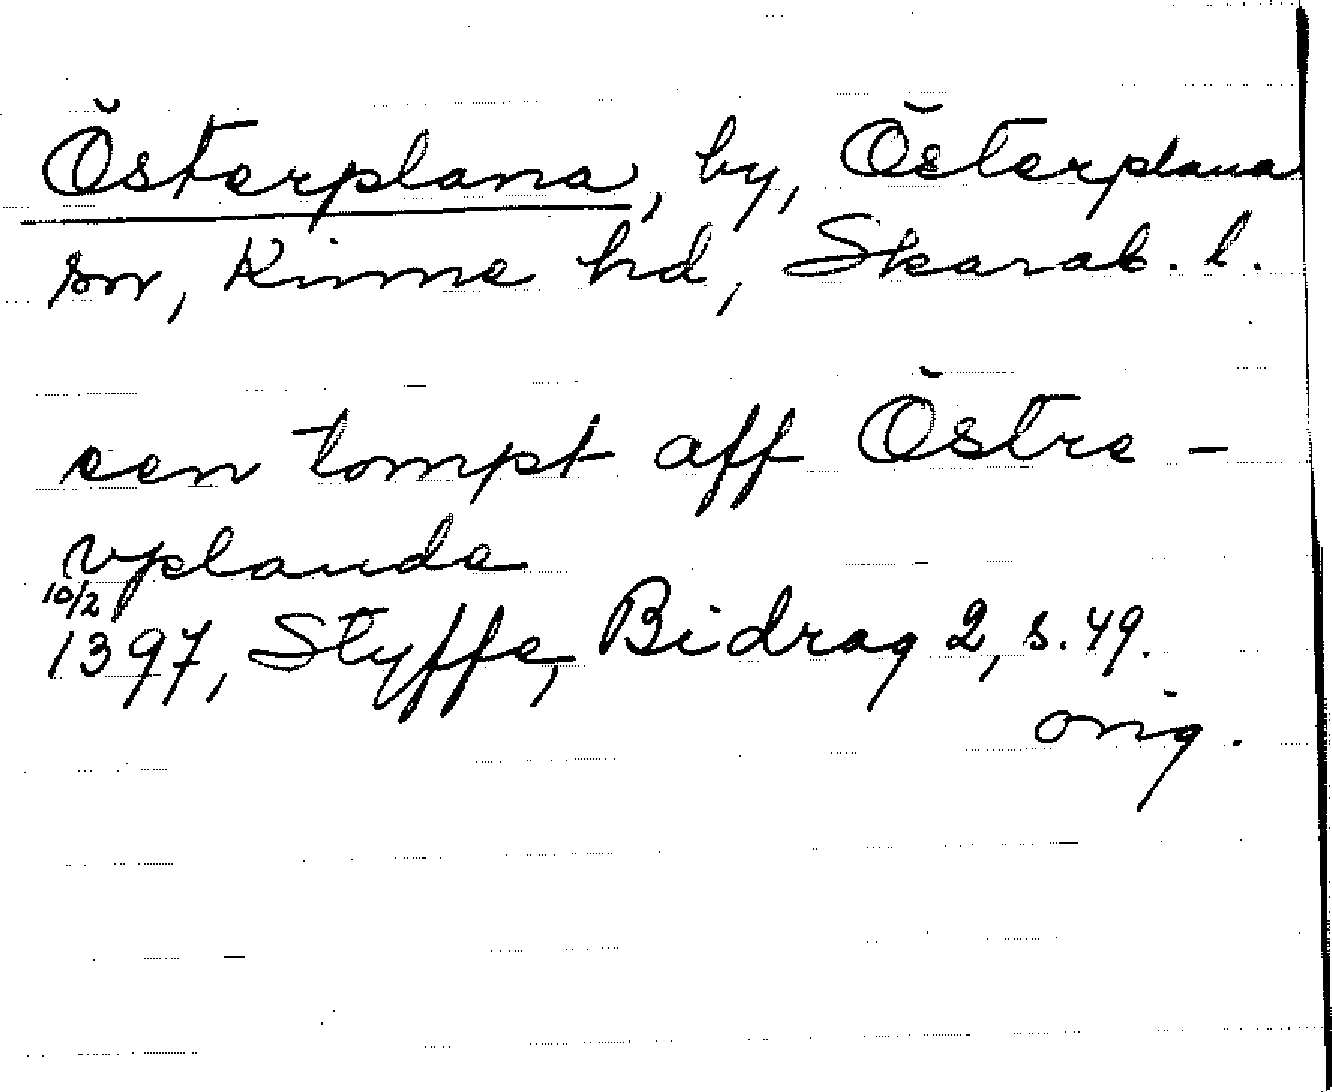 Österplana, by, Österplana
sn, Kinne hd, Skarab. l.
een tompt aff Östre-
vplande
10/2
1397, Styffe, Bidrag 2, s. 49.
orig.